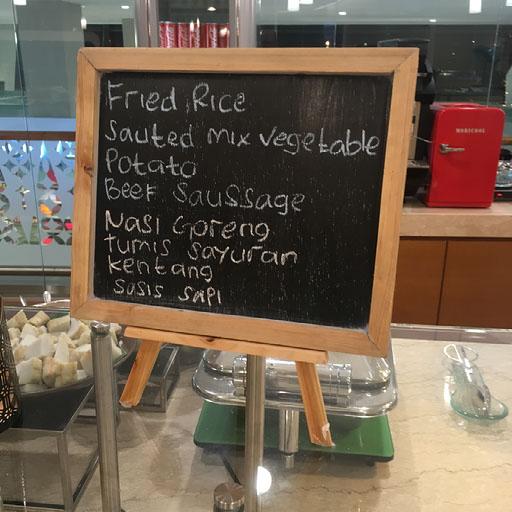 Fried Rice
Sauted mix vegetable
Potato
Beef Saussage
Nasi Goreng
tumis sayuran
kentang
sosis sapi